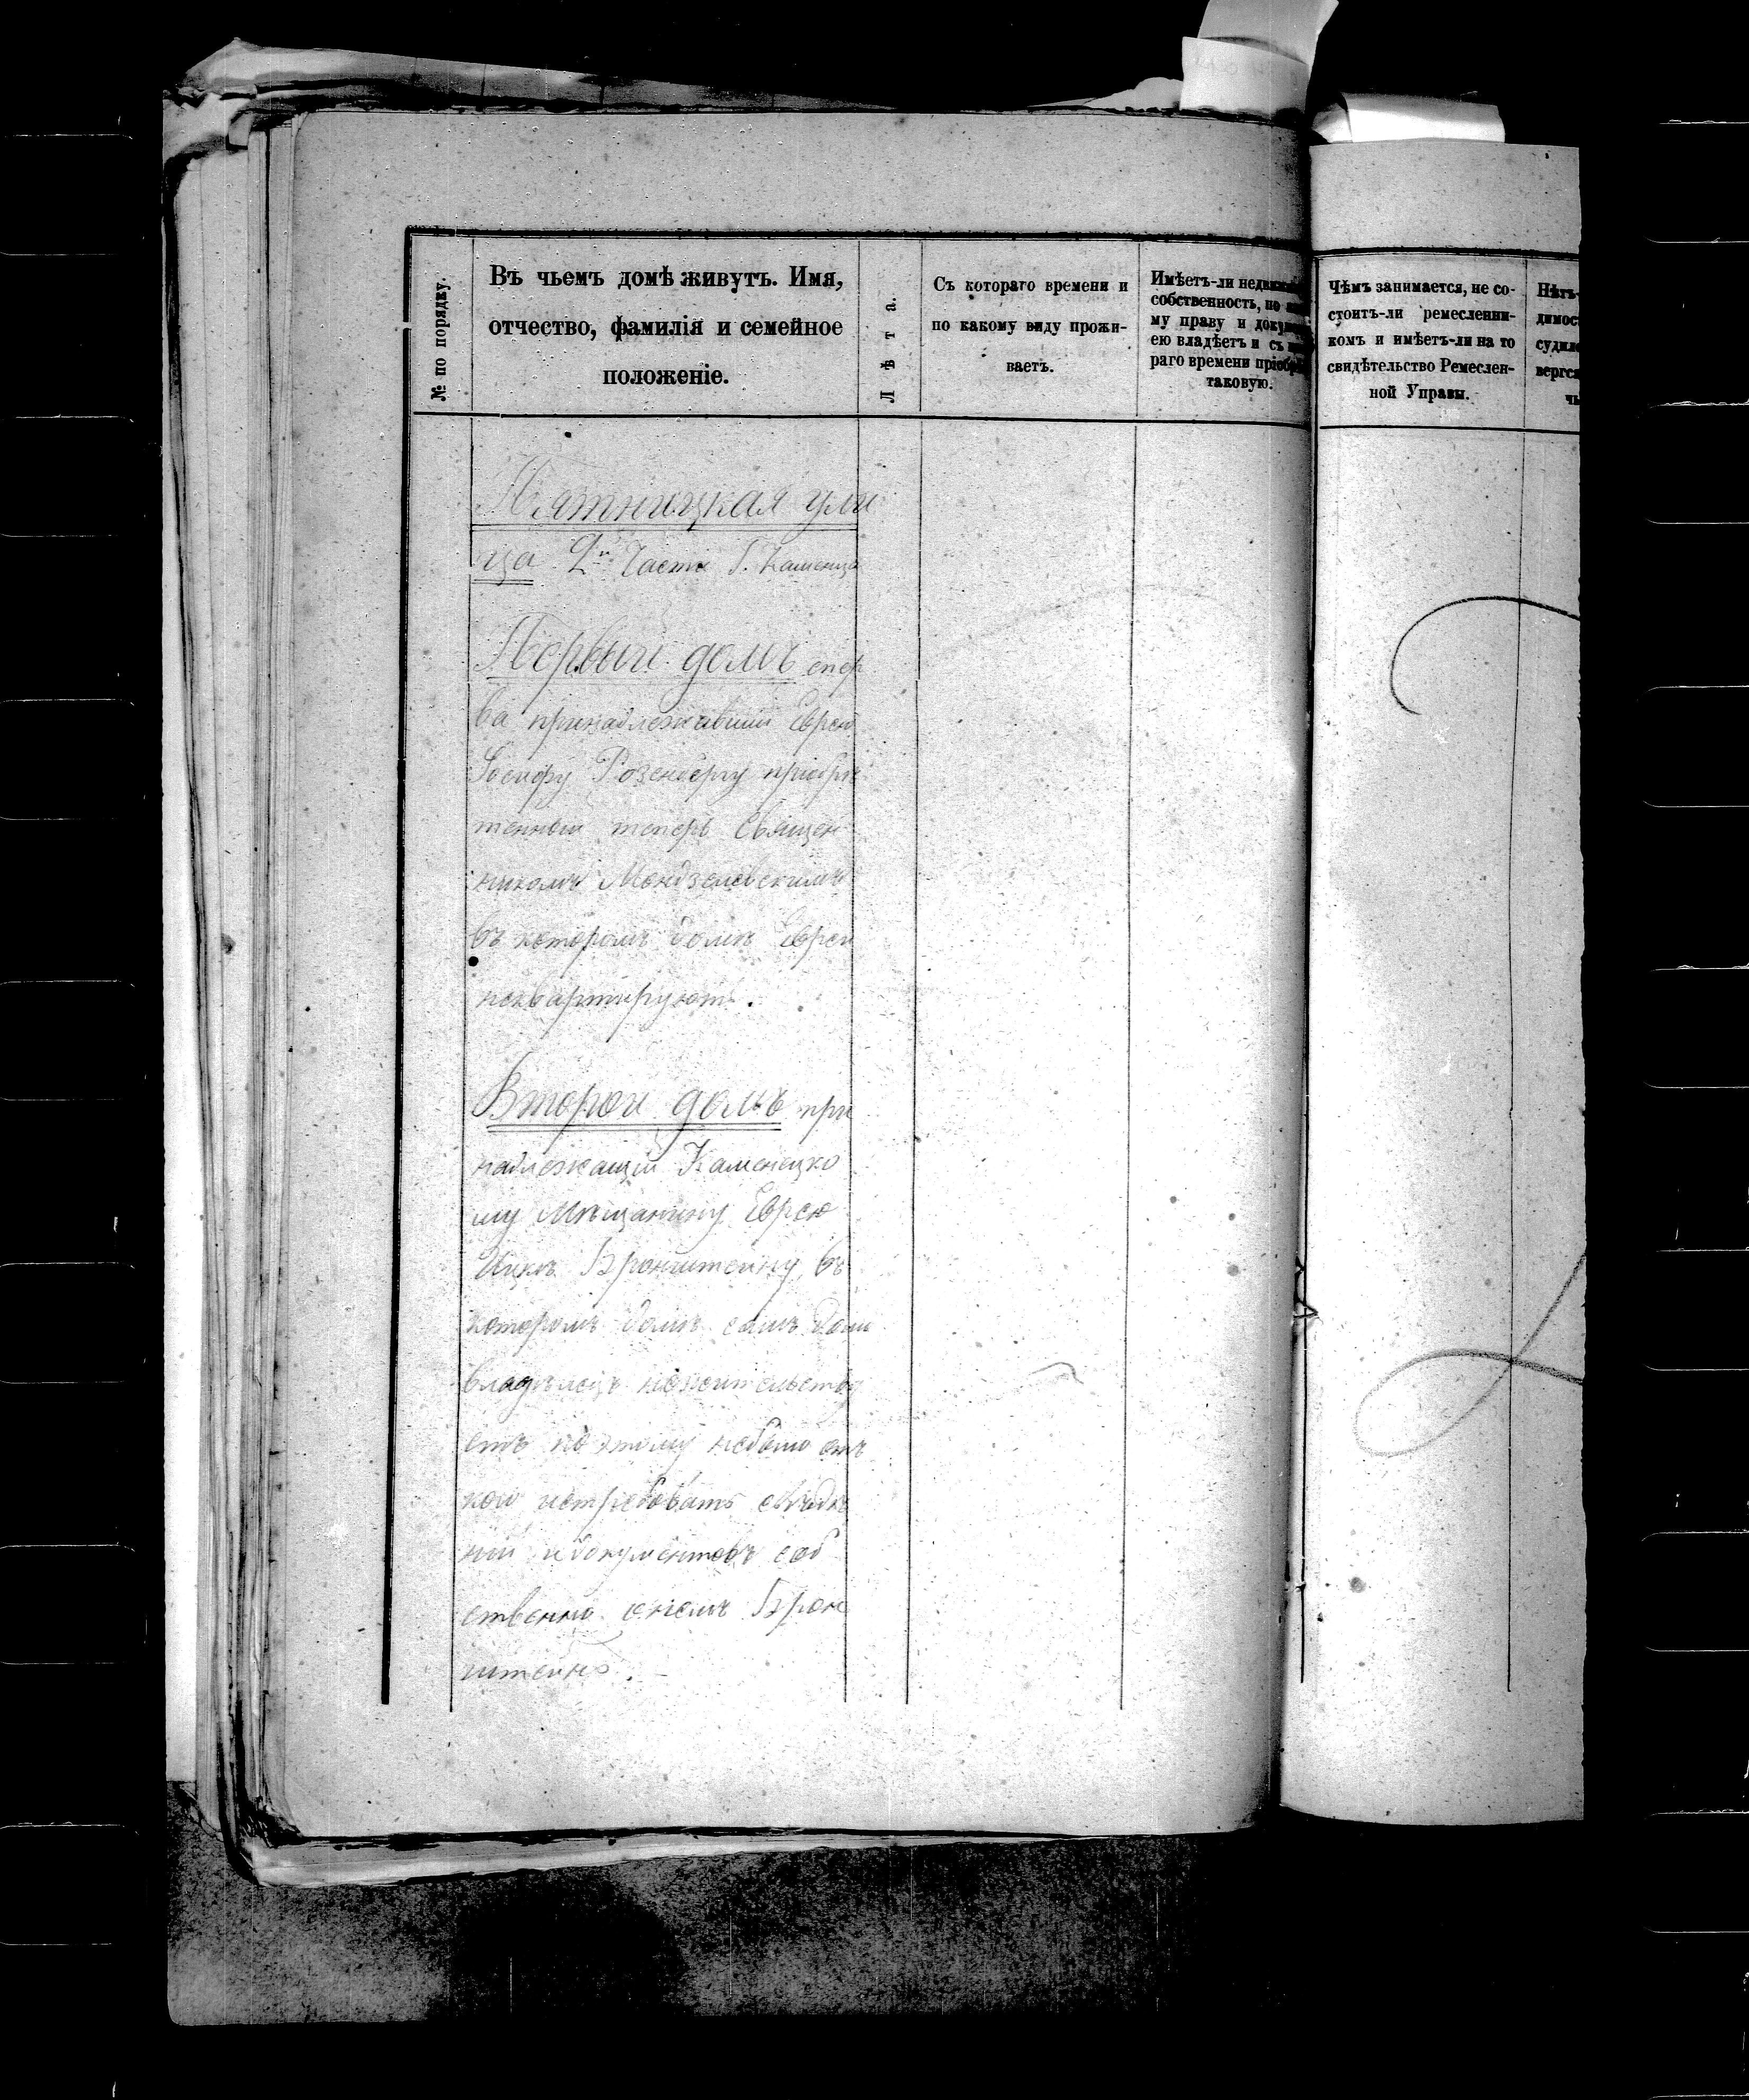 № по порядку.
Въ чьемъ домѣ живутъ. Имя,
отчество, фамилія и семейное
положеніе.
Лѣта.
Съ котораго времени и
по какому виду прожи-
ваетъ.
Имѣетъ-ли
собственность, по
му праву и
ею владѣетъ и съ
раго времени
таковую.
Чѣмъ занимается, не со-
стоитъ-ли ремесленни-
комъ и имѣетъ-ли на то
свидѣтельство Ремеслен-
ной Управы.
Пятницкая ули
ца 2й Части Г. Каменца
Первый домъ спер
ва принадлежавшій Еврею
Іосифу Розенбергу пріобрѣ
тенный теперь Священ
никомъ
въ которомъ домѣ Евреи
неквартируютъ.
Второй домъ при
надлежащій Каменецко
му Мѣщанину Еврею
Ицкѣ Бронштейну, въ
которомъ домѣ самъ домо
владѣлецъ нежительству
етъ по этому небыло отъ
кого истребовать свѣдѣ
ній и документовъ соб
ственно онемъ Брон
штейнѣ.